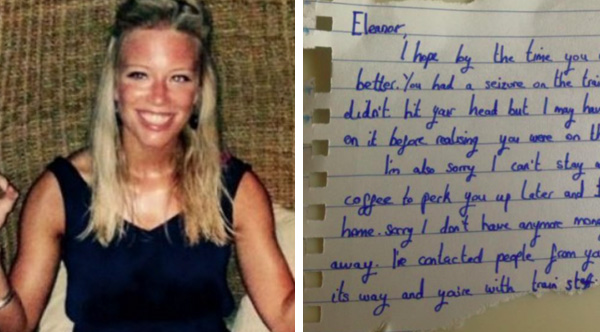 Eleanor,
I hope by the time you
better. You had a seizure on the
didn't hit your head but I may
on it before realising you were on
I'm also sorry I can't stay
coffee to perk you up later and
home. Sorry I don't have anymore
away. I've contacted people from
its way and you're with train staff